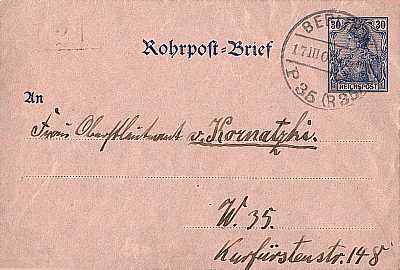 BERLIN
17.III.0
P 35 (R35)
30 30
REICHSPOST
Rohrpost-Brief
An
Frau Oberstleutnant v. Kornatzki.
W. 35.
Kurfürstenstr. 148